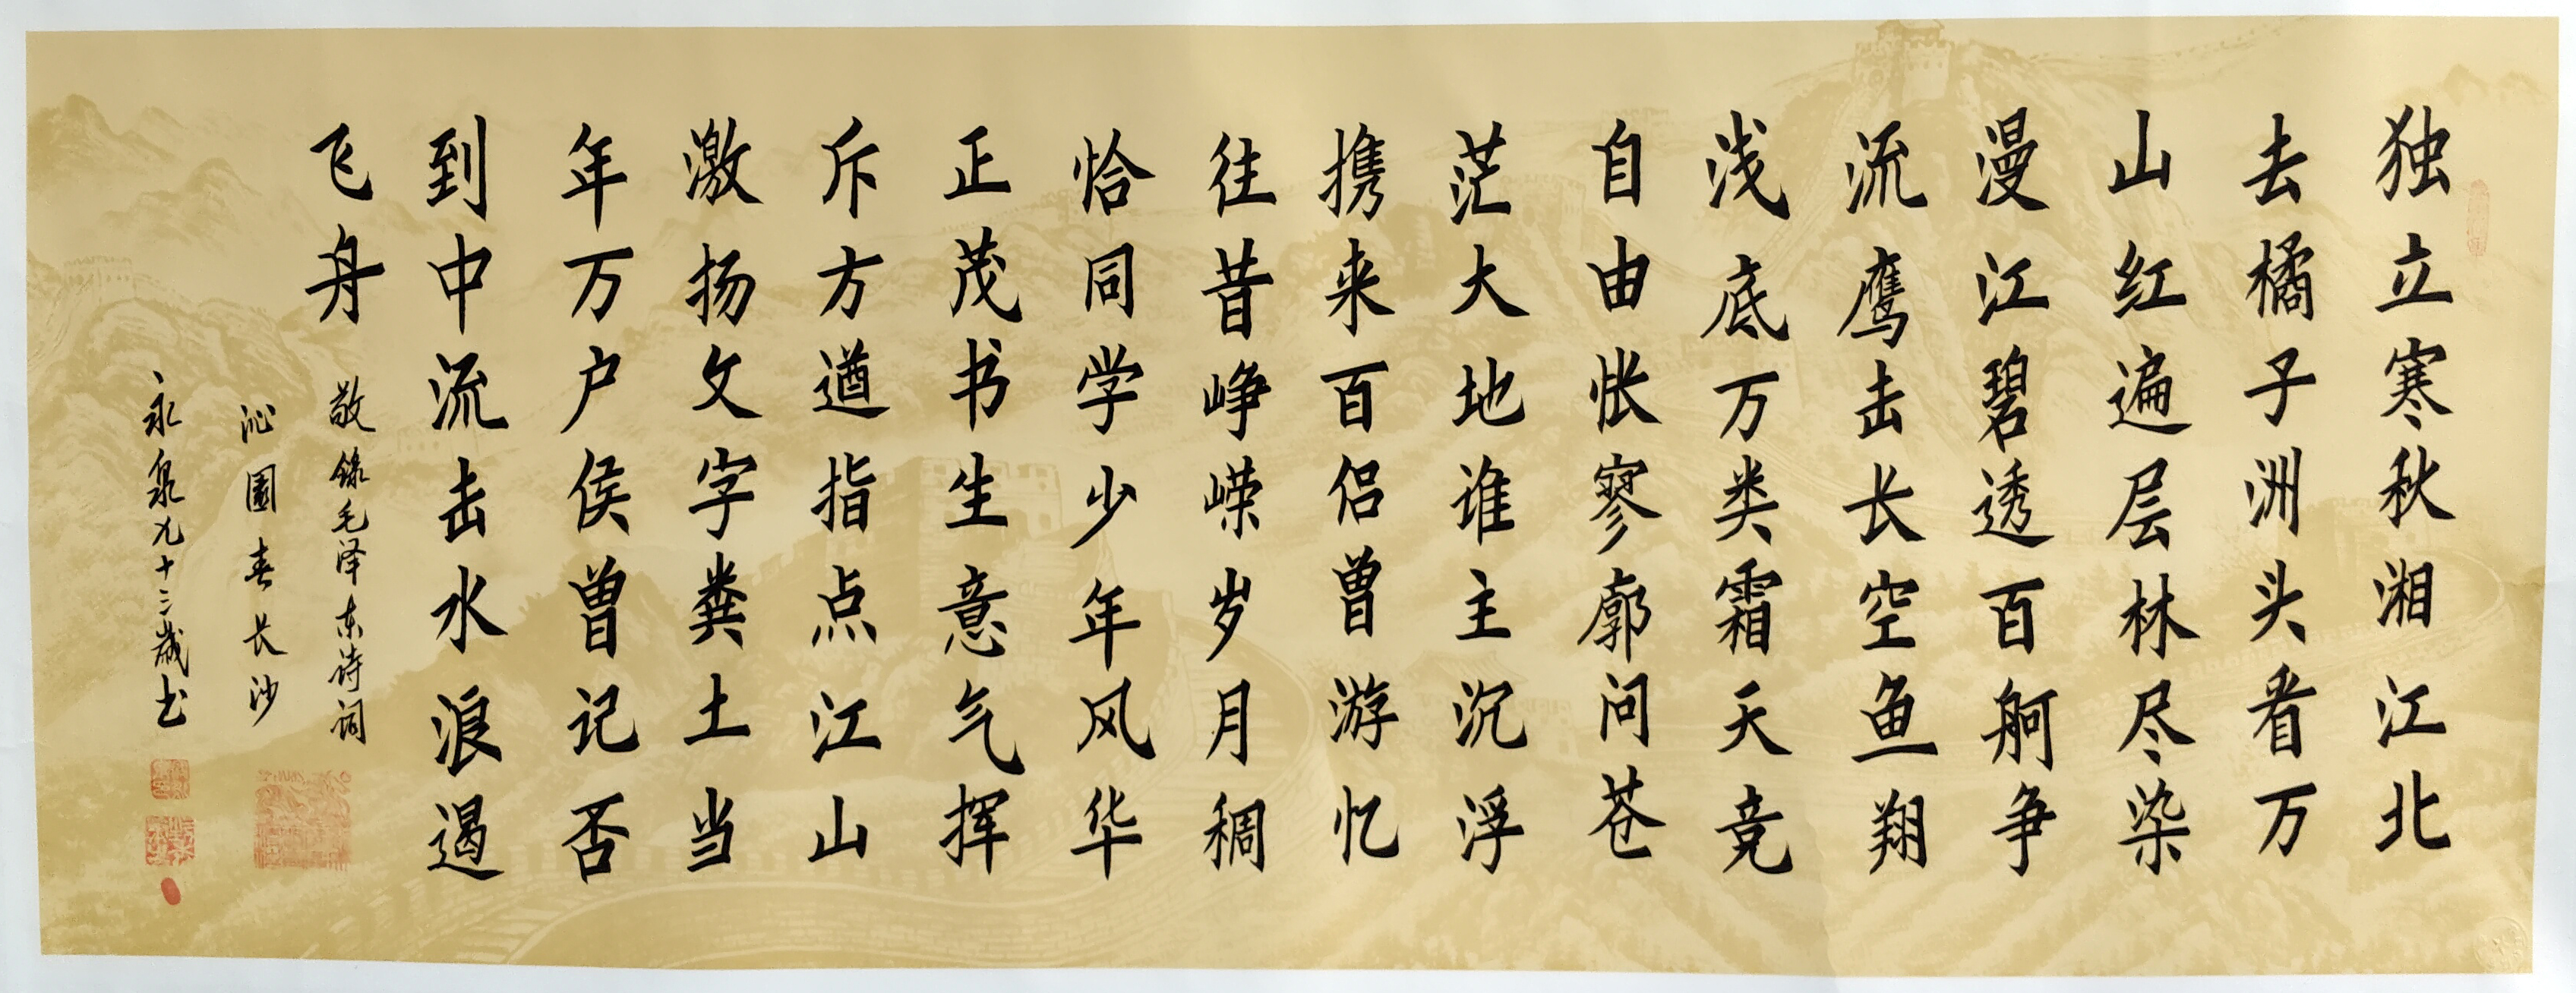 独立寒秋湘江北
去橘子洲头看万
山红遍层林尽染
漫江碧透百舸争
流鹰击长空鱼翔
浅底万类霜天竞
自由怅寥廓问苍
茫大地谁主沉浮
携来百侣曾游忆
往昔峥嵘岁月稠
恰同学少年风华
正茂书生意气挥
斥方遒指点江山
激扬文字粪土当
年万户侯曾记否
到中流击水浪遏
飞舟
敬錄毛泽东诗词
沁園春长沙
永泉九十三歲书